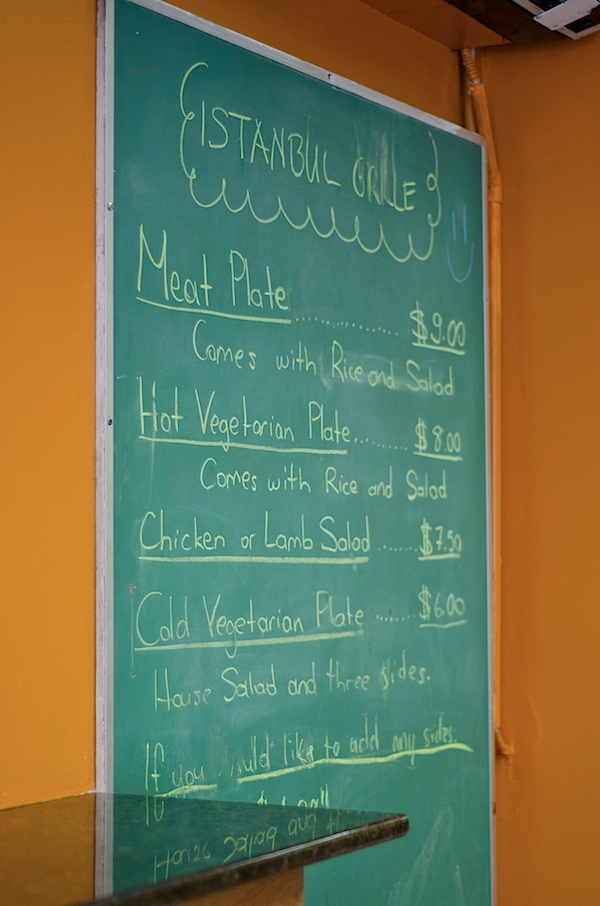 ISTANBUL GRILLE
Meat Plate ............ $9.00
Comes with Rice and Salad
Hot Vegetarian Plate........ $8.00
Comes with Rice and Salad
Chicken or Lamb Salad ...... $7.50
Cold Vegetarian Plate ...... $6.00
House Salad and three sides.
If you like to add any sides.